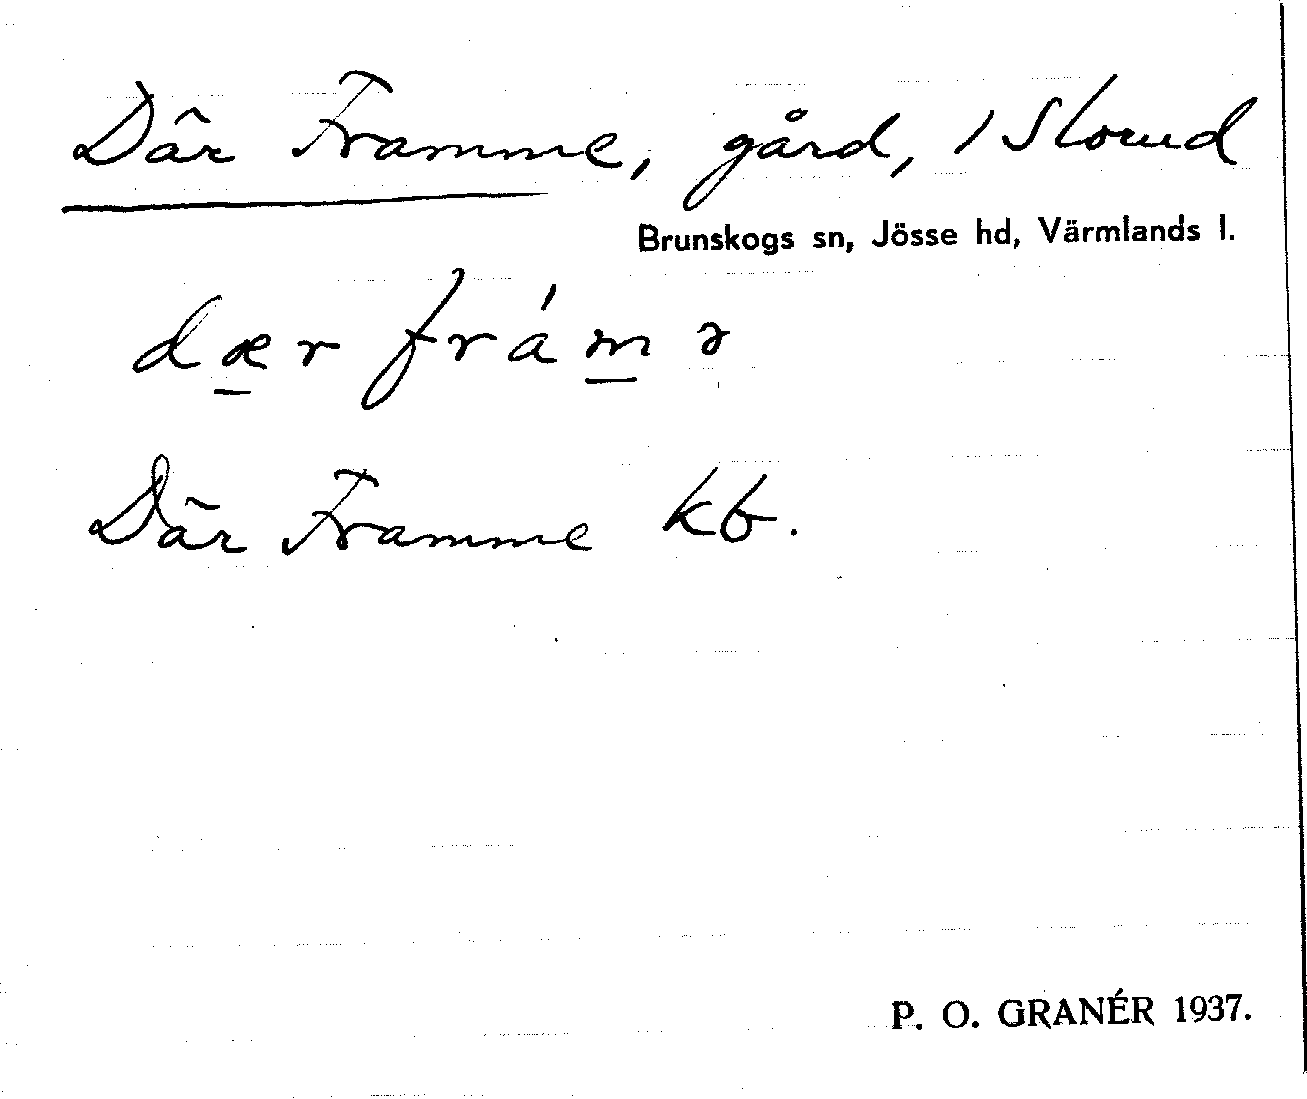 Där Framme, gård, i Slorud
Brunskogs sn, Jösse hd, Värmlands l.
dær frámə
Där Framme kb.
P. O. GRANÉR 1937.